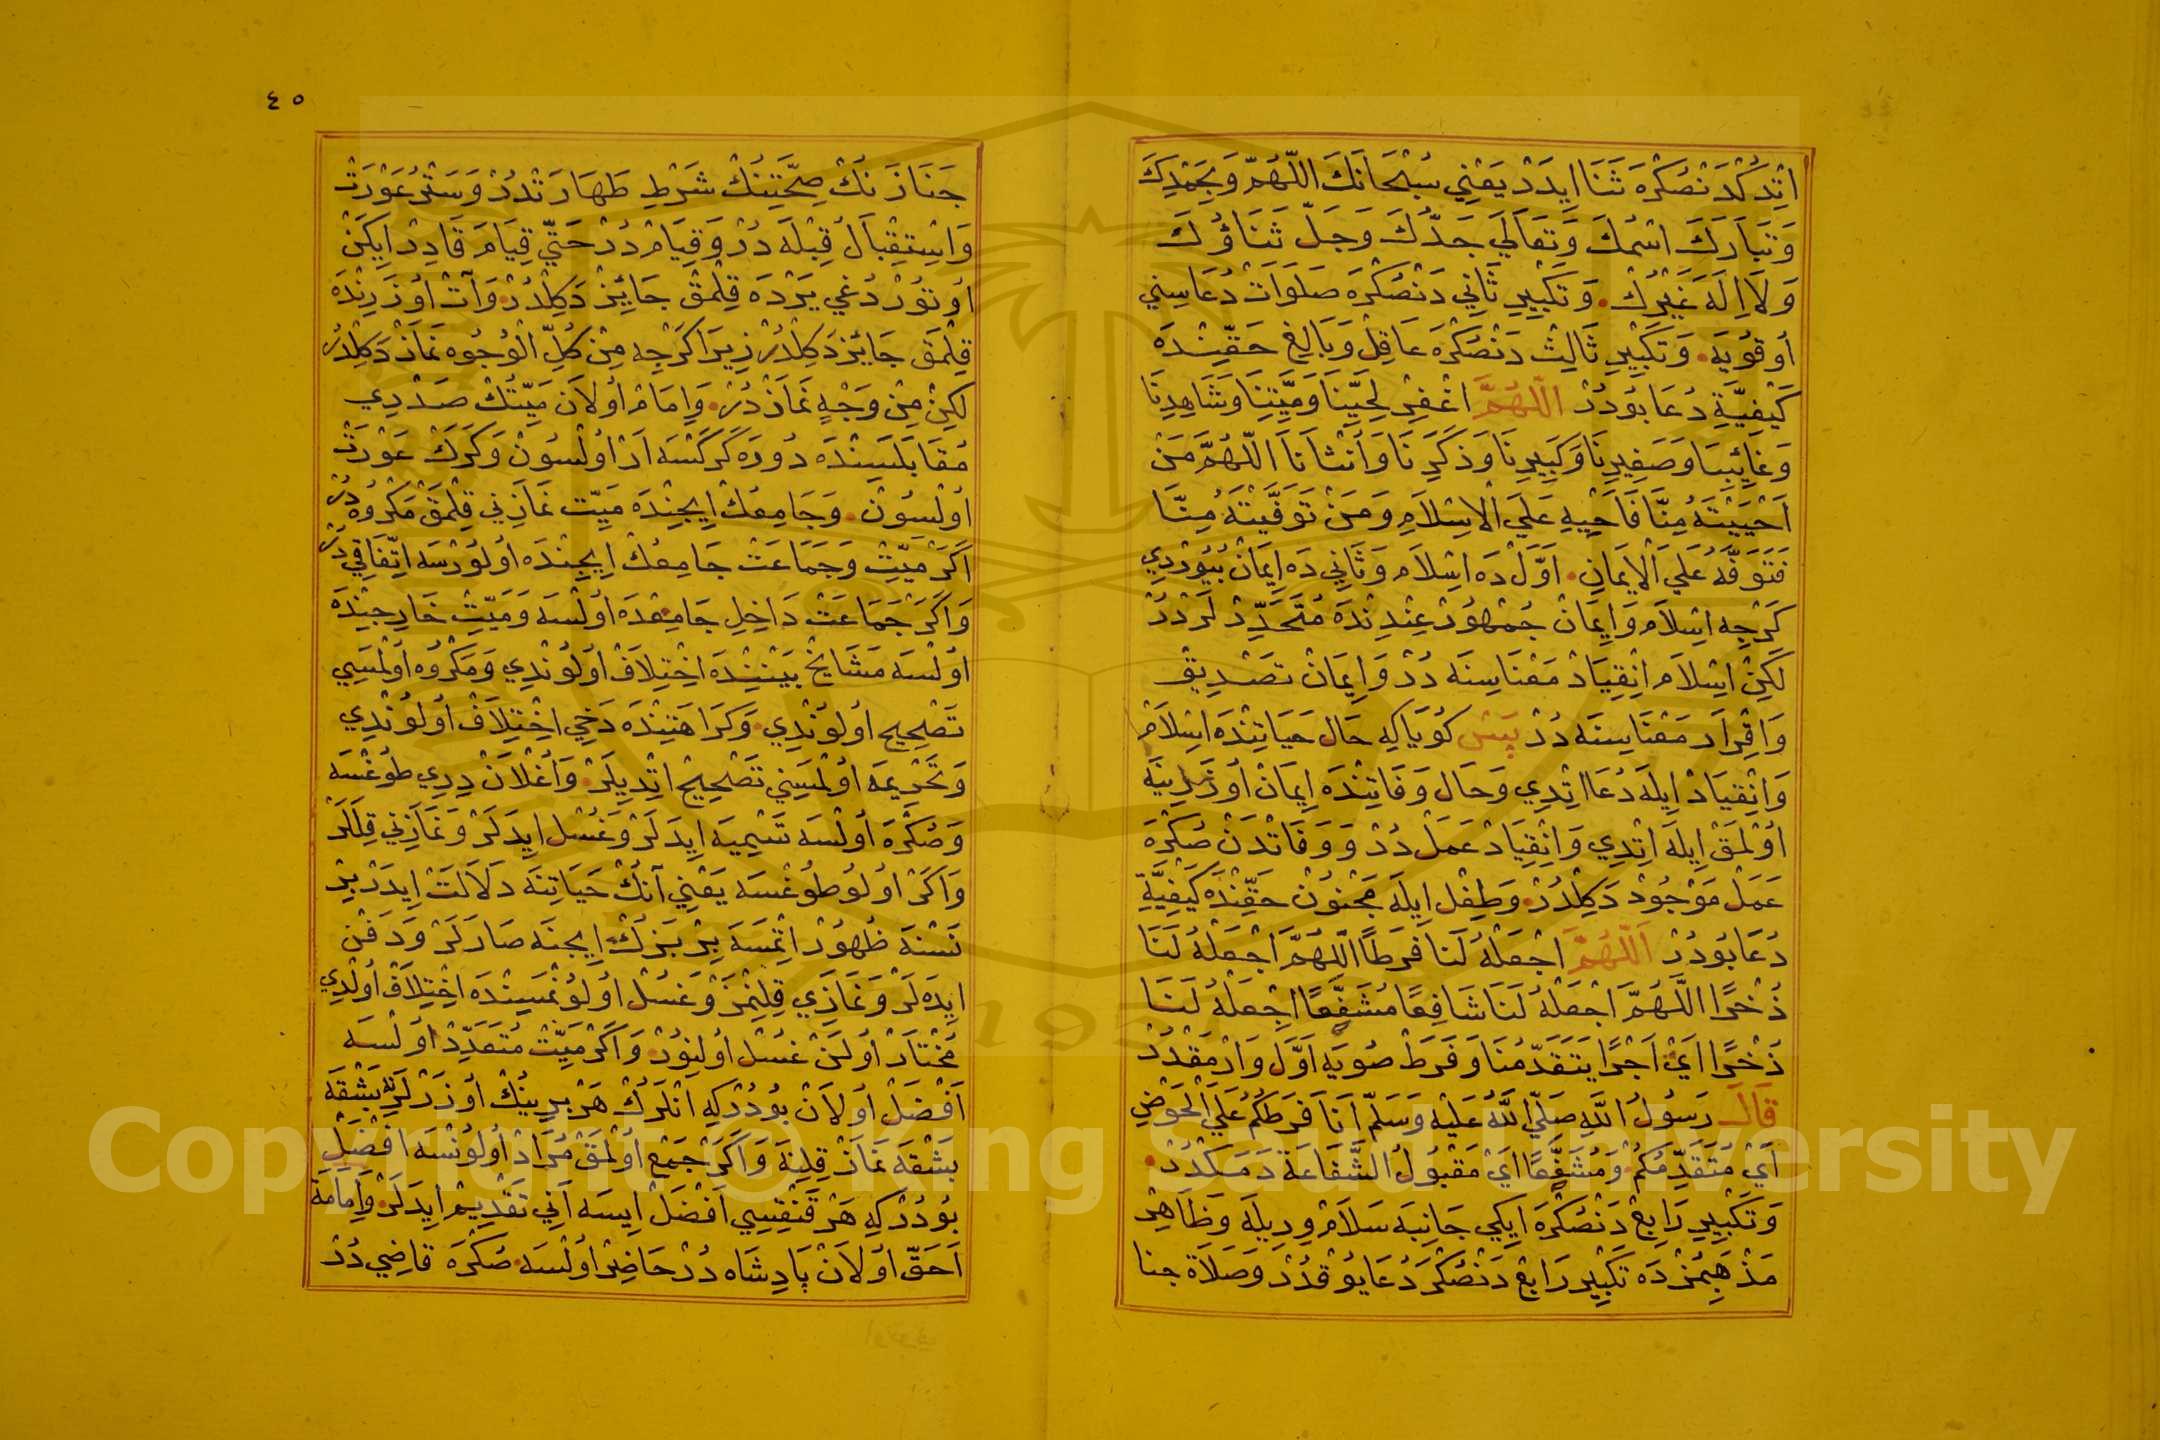 اِتْدُكْدَنْصُكْرَه ثَنَا اِيدَرْ يَعْنِي سُبْحَانَكَ اللّٰهُمَّ وَبِحَمْدِكَ
وَتَبَارَكَ اسْمُكَ وَتَعَالَي جَدُّكَ وَجَلَّ ثَنَاؤُكَ
وَلَا اِلَهَ غَيْرُكْ وَتَكْبِيرِ ثَانِي دَنْصُكْرَه صَلَوَاتْ دُعَاسِنِي
اُوقُويَه وَتَكْبِيرِ ثَالِثْ دَنْصُكْرَه عَاقِلْ وَبَالِغْ حَقِّنْدَه
كَيْفِيَّةِ دُعَا بُودُرْ اَللّٰهُمَّ اغْفِرْ لِحَيِّنَا وَمَيِّتِنَا وَشَاهِدِنَا
وَغَائِبِنَا وَصَغِيرِنَا وَكَبِيرِنَا وَذَكَرِنَا وَاُنْثَانَا اَللّٰهُمَّ مَنْ
اَحْيَيْتَهُ مِنَّا فَاَحْيِهِ عَلَي الْاِسْلَامِ وَمَنْ تَوَفَّيْتَهُ مِنَّا
فَتَوَفَّهُ عَلَي الْاِيمَانِ اَوَّلْ دَه اِسْلَامْ وَثَانِي دَه اِيمَانْ بُيُورْدِي
كَرْچِه اِسْلَامْ وَاِيمَانْ جُمْهُورْ عِنْدِنْدَه مُتَّحِدْلَرْدُرْ
لَكِنْ اِسْلَامْ اِنْقِيَادْ مَعْنَاسِنَه دُرْ وَاِيمَانْ تَصْدِيقْ
وَاِقْرَارْ مَعْنَاسِنَه دُرْ پَسْ كُويَاكِه حَالِ حَيَاتِنْدَه اِسْلَامْ
وَاِنْقِيَادْ اِيلَه دُعَا اِتْدِي وَحَالِ وَفَاتِنْدَه اِيمَانْ اُوزَرِينَه
اُولْمَقْ اِيلَه اِتْدِي وَاِنْقِيَادْ عَمَلْ دُرْ وَوَفَاتْدَنْ صُكْرَه
عَمَلْ مَوْجُودْ دَكِلْدُرْ وَطِفْل اِيلَه مَجْنُونْ حَقِّنْدَه كَيْفِيَّةِ
دُعَا بُودُرْ اَللّٰهُمَّ اجْعَلْهُ لَنَا فَرَطًا اَللّٰهُمَّ اجْعَلْهُ لَنَا
ذُخْرًا اَللّٰهُمَّ اجْعَلْهُ لَنَا شَافِعًا مُشَفَّعًا اِجْعَلْهُ لَنَا
ذُخْرًا اَيْ اَجْرًا يَتَقَدَّمُنَا وَفَرَطْ صُويَه اَوَّلْ وَارْمَقْدُرْ
قَالَ رَسُولُ اللّٰهِ صَلَّي اللّٰهُ عَلَيْهِ وَسَلَّمَ اَنَا فَرَطُكُمْ عَلَي الْحَوْضِ
اَيْ مُتَقَدِّمُكُمْ وَمُشَفَّعًا اَيْ مَقْبُولُ الشَّفَاعَةْ دَمَكْدُرْ
وَتَكْبِيرِ رَابِعْ دَنْصُكْرَه اِيكِي جَانِبَه سَلَامْ وِيرِيلَه وَظَاهِرْ
مَذْهَبِمُزْدَه تَكْبِيرِ رَابِعْ دَنْصُكْرَه دُعَا يُوقْدُرْ وَصَلَاةِ جنا
٤٥
جَنَازَنِكْ صِحَّتِنُكْ شَرْطِ طَهَارَتْدُرْ وَسَتْرِ عَوْرَتْ
وَاِسْتِقْبَالِ قِبْلَه دُرْ وَقِيَامْ دُرْ حَتَّي قِيَامَه قَادِرْ اِيكَنْ
اُوتُورْدُغِي يَرْدَه قِلْمَقْ جَائِزْ دَكِلْدُرْ وَآتْ اُوزَرِنْدَه
قِلْمَقْ جَائِزْ دَكِلْدُرْ زِيرَا كَرْچِه مِنْ كُلِّ الْوُجُوه نَمَازْ دَكِلْدُرْ
لَكِنْ مِنْ وَجْهٍ نَمَازْدُرْ وَاِمَامْ اُولَانْ مَيِّتُكْ صَدْرِي
مُقَابَلَسِنْدَه دُورَه كَرَكْسَه اَرْ اُولْسُونْ وَكَرَكْ عَوْرَتْ
اُولْسُونْ وَجَامِعُكْ اِيچِنْدَه مَيِّت نَمَازِنِي قِلْمَقْ مَكْرُوهْدُرْ
اَكَرْ مَيِّتْ وَجَمَاعَتْ جَامِعُكْ اِيچِنْدَه اُولُورْسَه اِتِّفَاقِيدُرْ
وَاَكَرْ جَمَاعَتْ دَاخِلِ جَامِعْدَه اُولْسَه وَمَيِّتْ خَارِجِنْدَه
اُولْسَه مَشَايِخْ بَيْنِنْدَه اِخْتِلَافْ اُولُونْدِي وَمَكْرُوه اُولْمَسِي
تَصْحِيح اُولُونْدِي وَكَرَاهَتِنْدَه دَخِي اِخْتِلَافْ اُولُونْدِي
وَتَحْرِيمَه اُولْمَسِنِي تَصْحِيحْ اِتْدِيلَرْ وَاُغْلَانْ دِرِي طُوغْسَه
وَصُكْرَه اُولْسَه تَسْمِيَه اِيدَلَرْ وَغُسْل اِيدَلَرْ وَنَمَازِنِي قِلَلَرْ
وَاَكَرْ اُولُو طُوغْسَه يَعْنِي آنُكْ حَيَاتِنَه دَلَالَتْ اِيدَرْ بِرْ
نَسْنَه ظُهُورْ اِتْمَسَه بِرْ بَزُكْ اِيچِنَه صَارَلَرْ وَدَفْن
اِيدَه لَرْ وَنَمَازِي قِلِنْمَزْ وَغُسْل اُولُونْمَسِنْدَه اِخْتِلَافْ اُولْدِي
مُخْتَارْ اُولَنْ غُسْل اُولِنُورْ وَاَكَرْ مَيِّتْ مُتَعَدِّدْ اُولْسَه
اَفْضَلْ اُولَانْ بُودُرْكِه اَنْلَرُكْ هَرْ بِرِينُكْ اُوزَرْلَرِنَه بَشْقَه
بَشْقَه نَمَازْ قِلِنَه وَاَكَرْ جَمْع اُولْمَقْ مُرَادْ اُولُونْسَه اَفْضَلِ
بُودُرْكِه هَرْ قَنْقِيسِي اَفْضَلْ اِيسَه اَنِي تَقْدِيمْ اِيدَلَرْ وَاِمَامَةَ
اَحَقّ اُولَانْ پَادِشَاه دُرْ حَاضِرْ اُولْسَه صُكْرَه قَاضِي دُرْ
Copyright © King Saud University
195